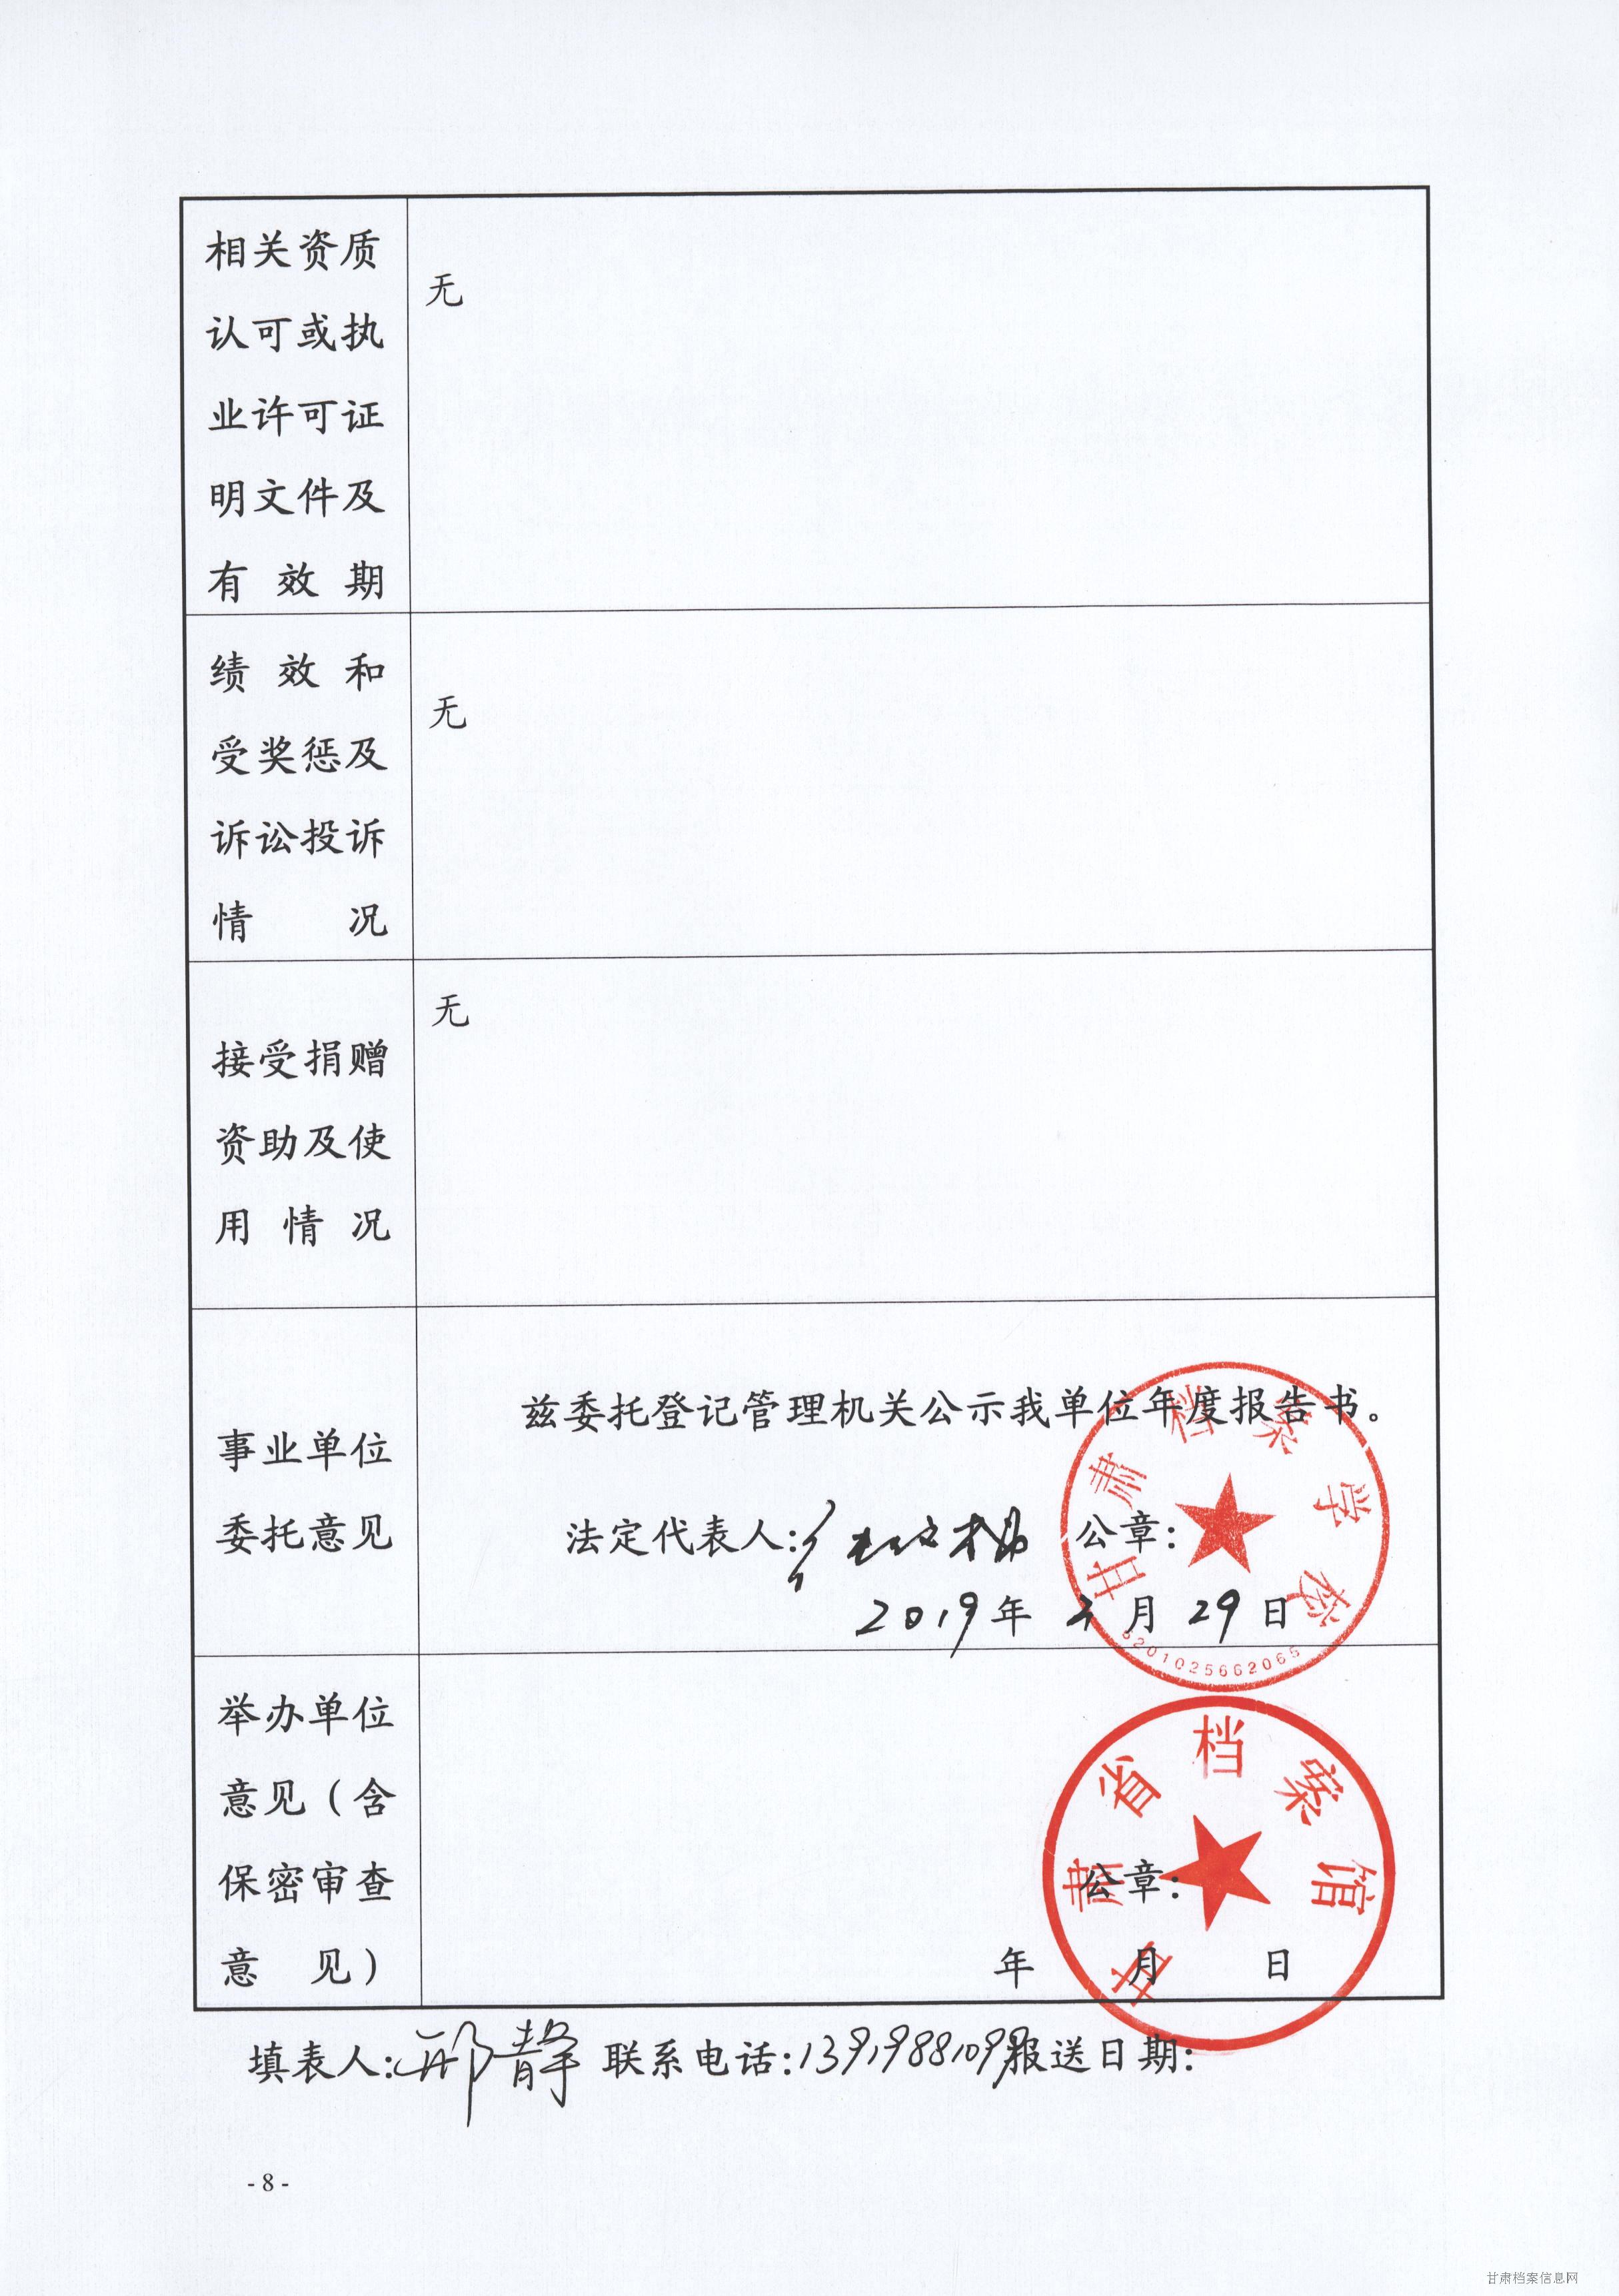 相关资质
认可或执
业许可证
明文件及
有效期
无
绩效和
受奖惩及
诉讼投诉
情况
无
接受捐赠
资助及使
用情况
无
事业单位
委托意见
兹委托登记管理机关公示我单位年度报告书。
法定代表人:
公章:
2019年 月 29日
甘肃档案学校
6201025662065
举办单位
意见(含
保密审查
意见)
公章:
年 月 日
甘肃省档案馆
填表人:邢静 联系电话:13919881099报送日期:
-8-
甘肃档案信息网